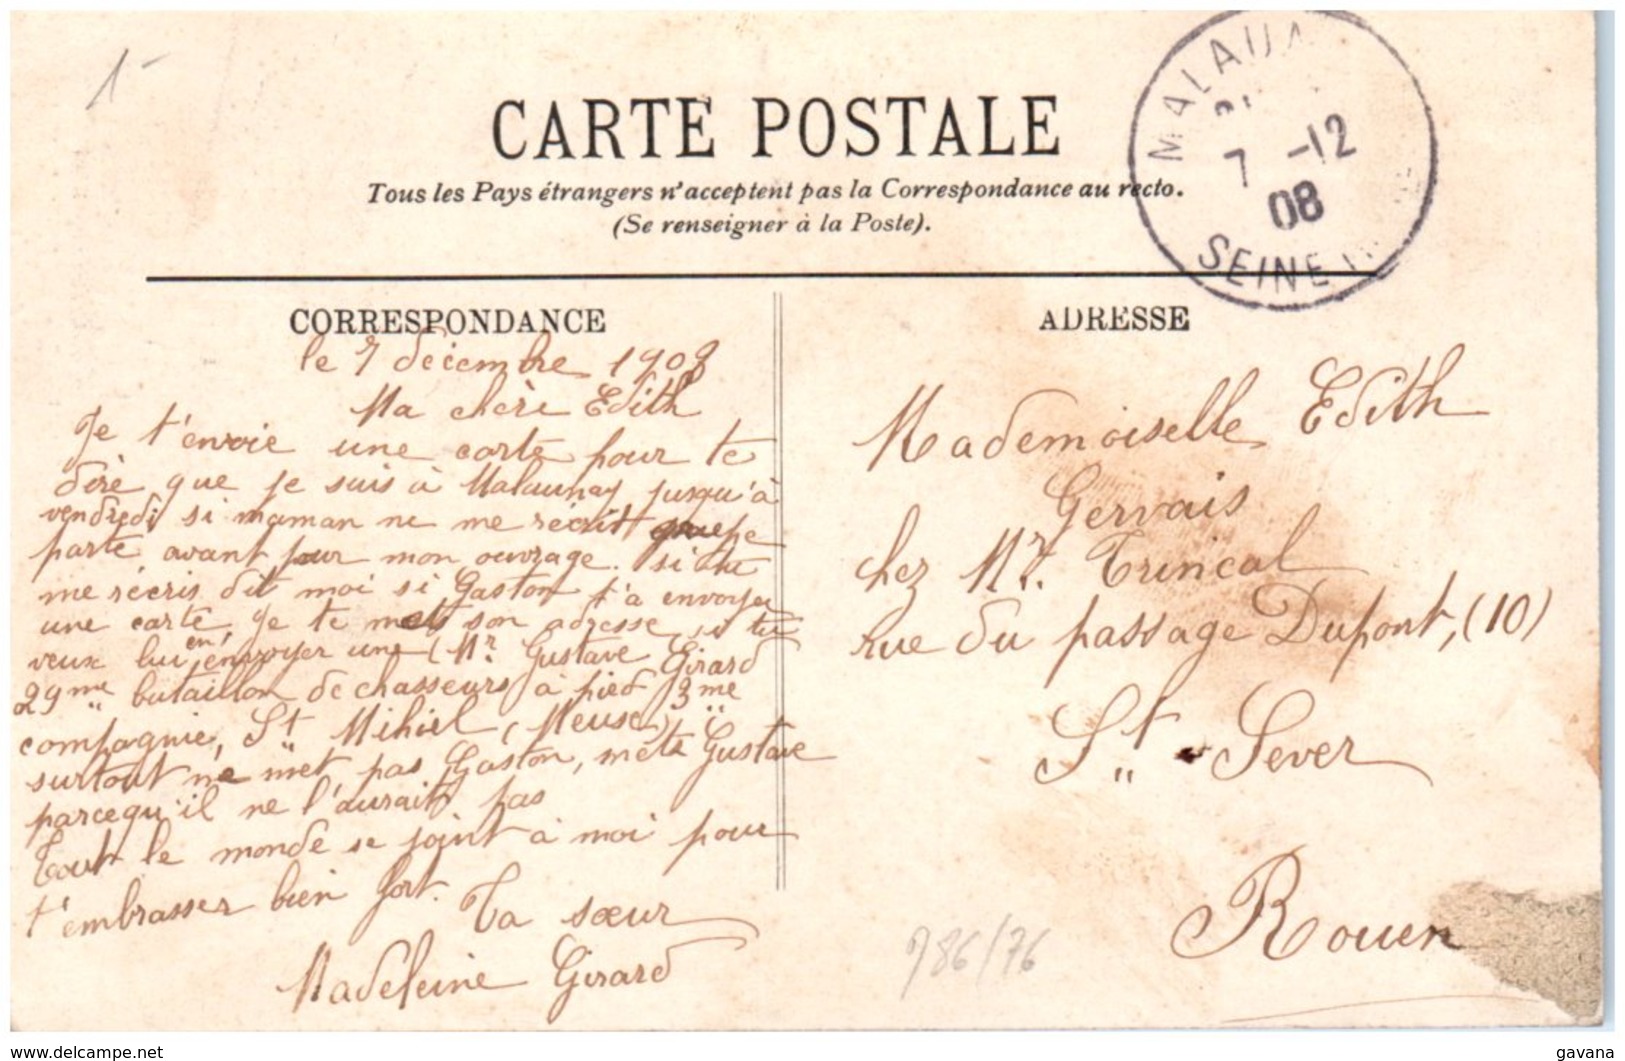 1-
CARTE POSTALE
Tous les Pays étrangers n'acceptent pas la Correspondance au recto.
(Se renseigner à la Poste).
MALAUNA
7 -12
08
SEINE IN
CORRESPONDANCE
le 7 décembre 1908
Ma chère Edith
Je t'envoie une carte pour te
dire que je suis à Malaunay jusqu'à
vendredi si maman ne me récrit que je
parte avant pour mon ouvrage. si tu
me récris dit moi si Gaston t'a envoyer
une carte je te mets son adresse si tu
veux lui en envoyer une (Mr. Gustave Girard
29me bataillon de chasseurs à pied 3me
compagnie, St Mihiel (Meuse)
surtout ne met pas Gaston, mets Gustave
parcequ'il ne l'aurait pas
Tout le monde se joint à moi pour
t'embrasser bien fort.
Ta sœur
Madeleine Girard
ADRESSE
Mademoiselle Edith
Gervais
chez Mr. Trincal
rue du passage Dupont, (10)
St - Sever
Rouen
786/76
www.delcampe.net
gavana